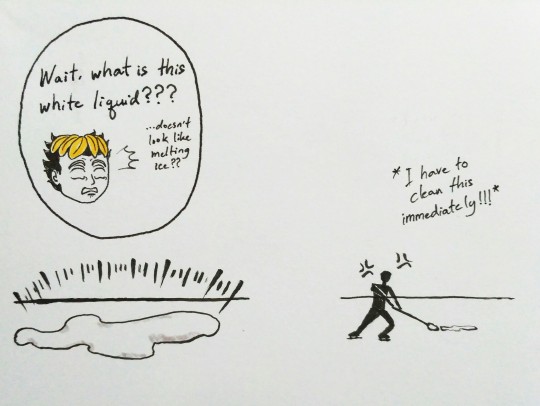 Wait, what is this
white liquid???
...doesn't
look like
melting
ice??
*I have to
clean this
immediately!!!*